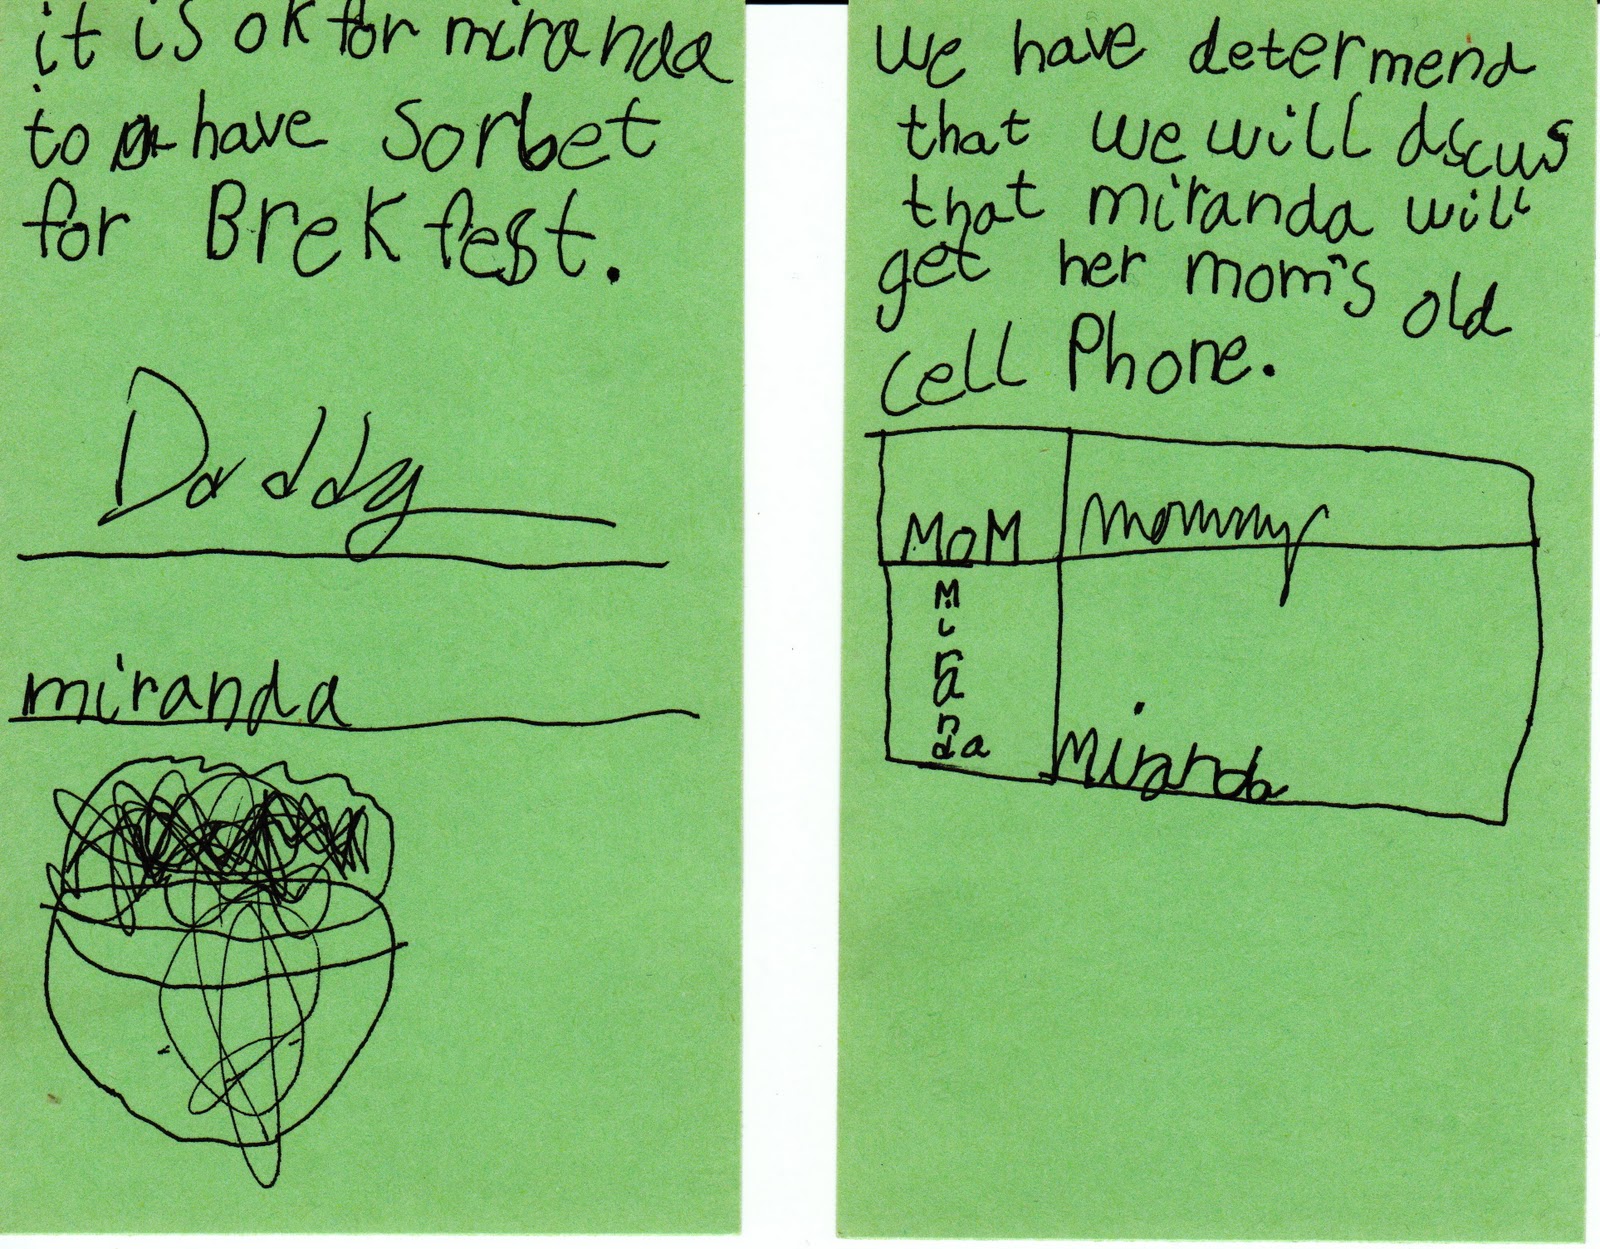 it is ok for miranda
to have sorbet
for Brekfest.
Daddy
miranda
we have determend
that we will dscus
that miranda will
get her mom's old
cell Phone.
MOM mommy
Miranda Miranda